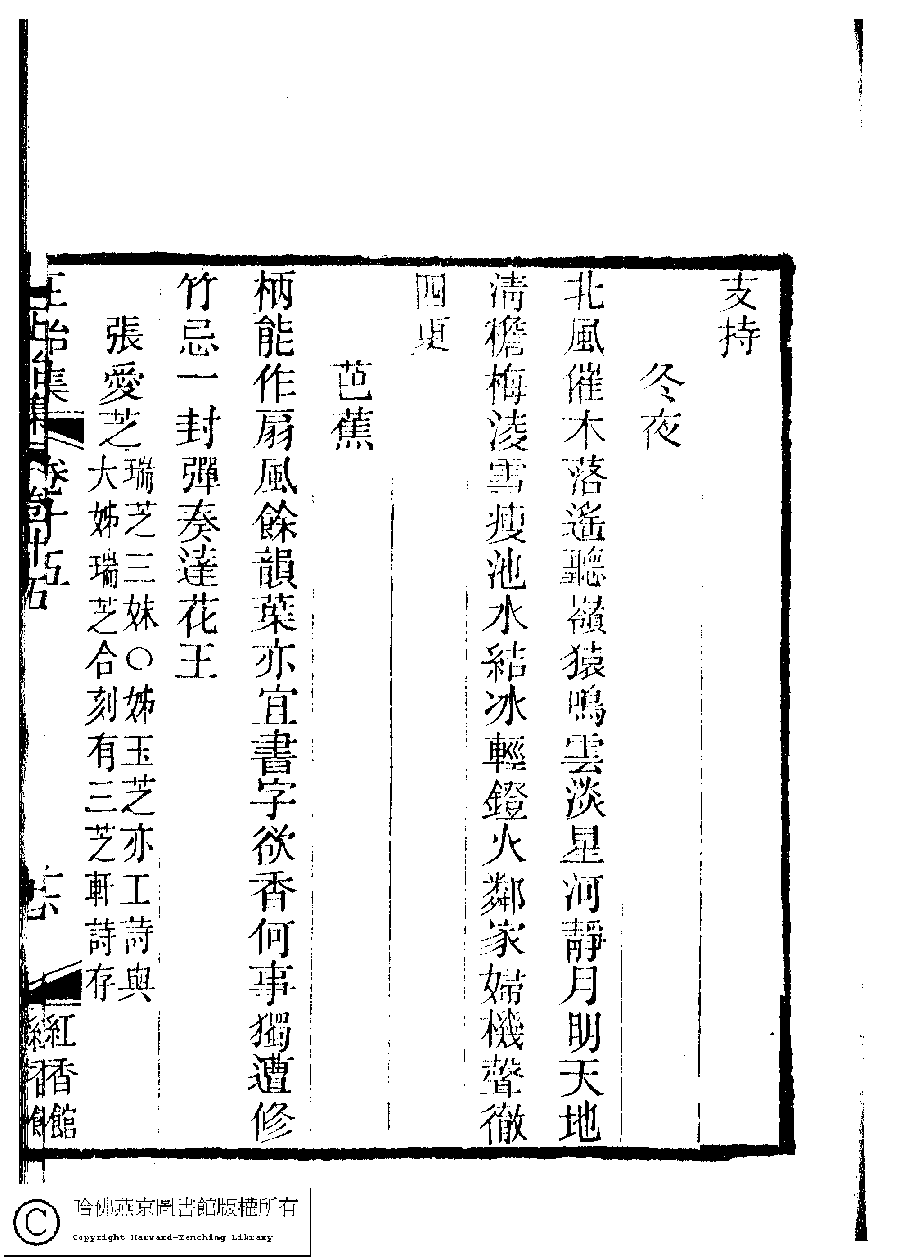 支持
冬夜
北風催木落遙聽嶺猿鳴雲淡星河靜月明天地
清檐梅淩雪瘦池水結冰輕鐙火鄰家婦機聲徹
四更
芭蕉
柄能作扇風餘韻葉亦宜書字欲香何事獨遭修
竹忌一封彈奏達花王
張愛芝
瑞芝三妹○姊玉芝亦工詩與
大姊瑞芝合刻有三芝軒詩存
紅香館
哈佛燕京圖書館版權所有
Copyright Harvard-Yenching Library